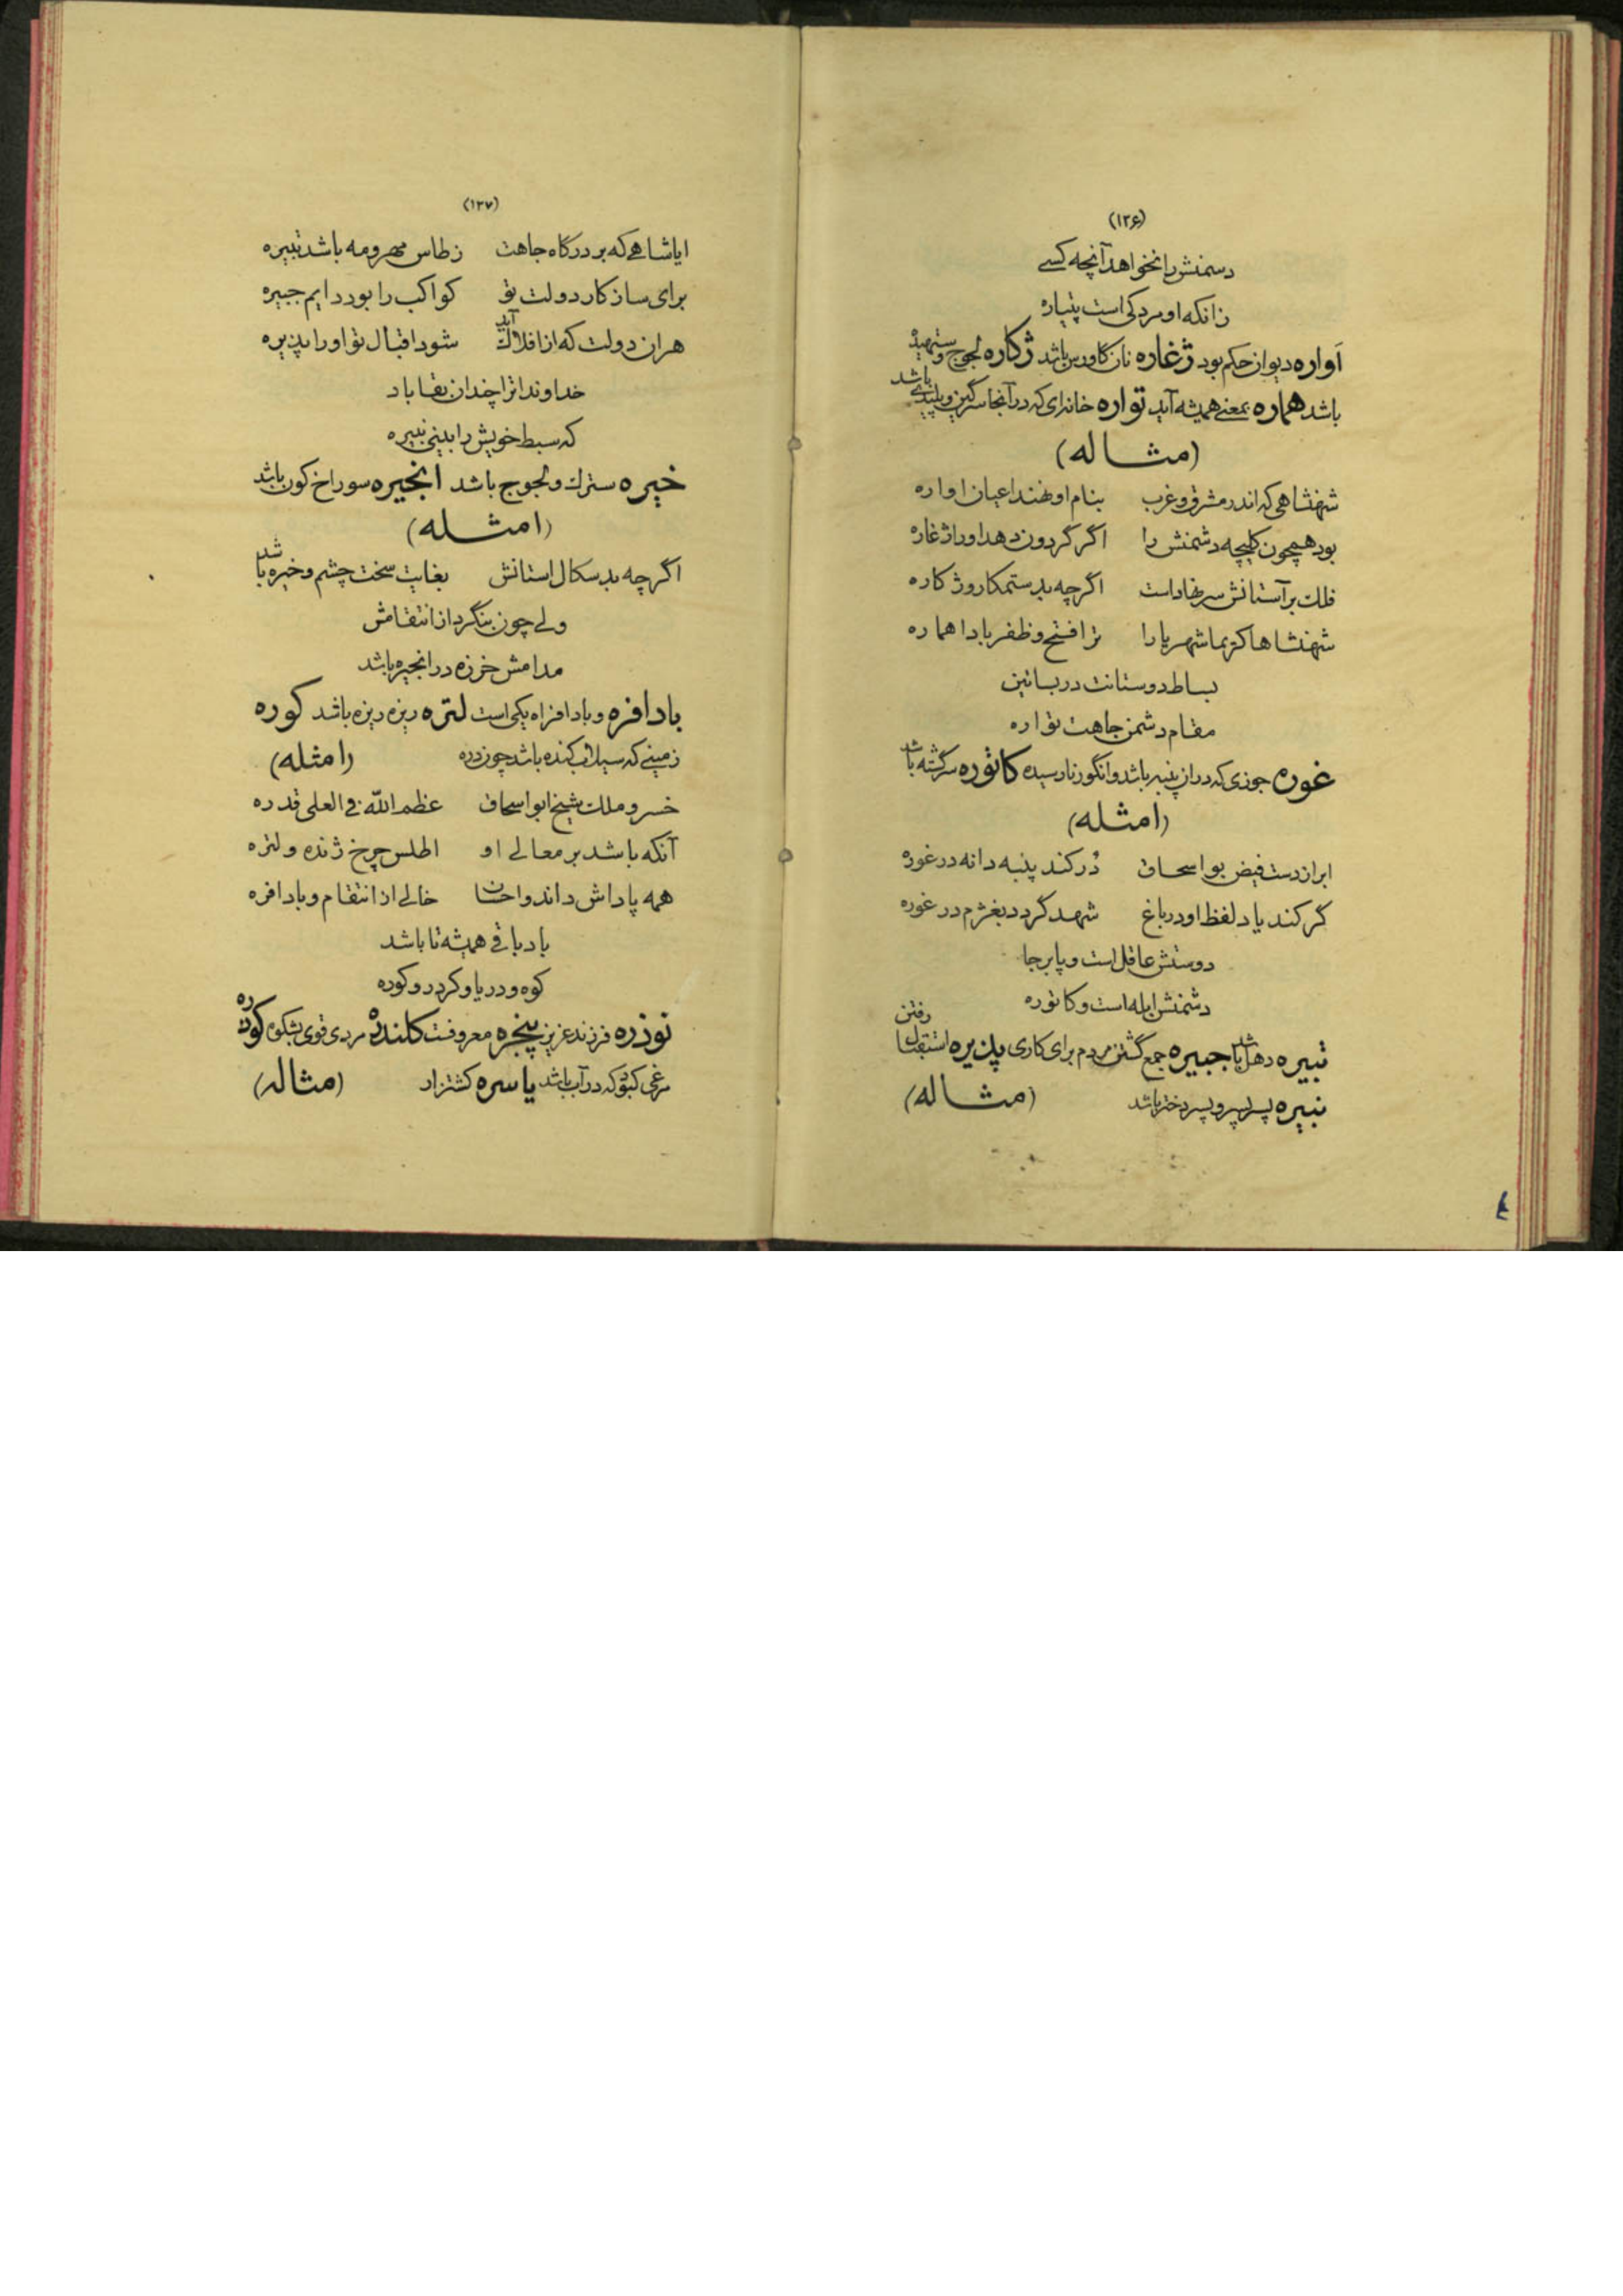 (۱۲۶)
دشمنش را نخواهد آنچه کسے
زانکه او مردکی است پتیاره
آواره دیوان حکم بود ژغاره نان کاورس باشد ژکاره لجوج و ستهیده
باشد هماره بمعنے همیشه آید تواره خانه‌ای که در آنجا سرگین و پلیدی باشد
(مثاله)
شهنشاهی که اندر مشرق و غرب بنام او نهند اعیان اواره
بود همچون کلیچه دشمنش را اگر گردون دهد او را ژغاره
فلك بر آستانش سر نهاداست اگرچه بد ستمکار و ژکاره
شهنشاها کریما شهریارا ترا فتح و ظفر بادا هماره
بساط دوستانت در بساتین
مقام دشمن جاهت تواره
غوره جوزی که در آن پنبه باشد و انگور نارسیده کاتوره سرگشته باشد
(امثله)
ابر از دست فیض بو اسحاق دُر کند پنبه دانه در غوره
گر کند یاد لفظ او در باغ شهد گردد بغژم در غوره
دوستش عاقل است و پابرجا
دشمنش ابله است و کاتوره
تبیره دهل باشد جبیره جمع گشتن مردم برای کاری پذیره استقبال رفتن
نبیره پسر پسر و پسر دختر باشد (مثاله)
(۱۲۷)
ایا شاهے که بر درگاه جاهت ز طاس مهر و مه باشد تبیره
برای ساز کار دولت تو کواکب را بود دایم جبیره
هران دولت که از افلاك آید شود اقبال تو او را پذیره
خداوندا ترا چندان بقا باد
که سبط خویش را بینی نبیره
خیره سترك و لجوج باشد انجیره سوراخ کون باشد
(امثله)
اگرچه بد سکال استانش بغایت سخت چشم و خیره باشد
ولے چون بنگرد از انتقامش
مدامش خرزه در انجیره باشد
بادافره و بادافراه یکی است لتره ریزه ریزه باشد کوره
زمینے که سیلاب کنده باشد چون دره (امثله)
خسرو ملك شیخ ابواسحاق عظم الله فی العلی قدره
آنکه باشد بر معالے او اطلس چرخ ژنده و لتره
همه پاداش داند و احسان خالے از انتقام و بادافره
باد باقے همیشه تا باشد
کوه و دریا و کردر و کوره
نوذره فرزند عزیز پنجره معروفست کلندره مردی قوی بشکوه کودره
مرغی کبود که در آب باشد یاسره کشتزار (مثاله)